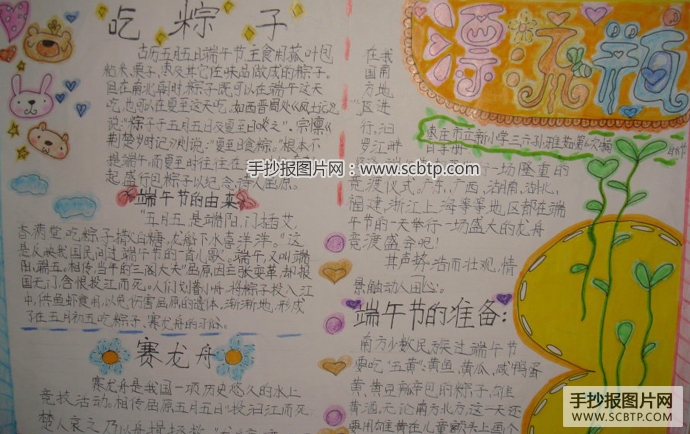 吃粽子
古历五月五日端午节主食用菰叶包
粘米、栗子、枣及其它佐味品做成的粽子。
但在南北朝时,粽子既可以在端午这天
吃,也可以在夏至这天吃,如西晋周处《风土记》
说:“粽子于五月五日及夏至日啖之”。宗懔《
荆楚岁时记》则说:“夏至日食粽。”根本不
是端午,而夏至时往往在
起盛行包粽子以纪念诗人屈原。
端午节的由来
“五月五,是端阳,门插艾,
香满堂,吃粽子,撒白糖,龙船下水喜洋洋。”这
是从映我国民间过端午节的一首儿歌。端午,又叫端
阳、端五。相传,当年的三闾大夫屈原因主张变革,却报
国无门,含恨投江而死。人们划着小舟,将粽子投入江
中,供鱼虾食用,以免伤害屈原的遗体。渐渐地,形成
了在五月初五吃粽子、赛龙舟的习俗。
赛龙舟
赛龙舟是我国一项历史悠久的水上
竞技活动。相传屈原五月五日投汨江而死
楚人哀之,乃以舟楫拯救
在我
国南
方地
区进
行,汨
罗江畔
一场隆重的
竞渡仪式。广东、广西、湖南、湖北、
福建、浙江、上海等等地区都在端
午节的一天举行一场盛大的龙舟
竞渡盛会呢!
其声势浩而壮观,情
景融动人面心。
端午节的准备:
南方少数民族过端午节
要吃“五黄”:黄鱼、黄瓜、咸鸭蛋
黄、黄豆瓣包的粽子、雄
黄酒,无论南北方,这一天还
要用雄黄在儿童额头上画个
漂流瓶
枣庄市立新小学三六孙雅茹第6次手抄
手抄报图片网:www.scbtp.com
手抄报图片网
WWW.SCBTP.COM